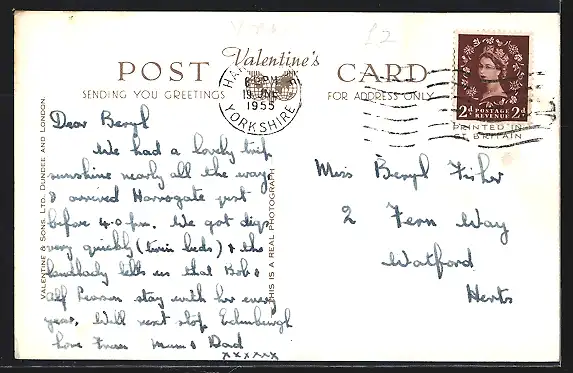 £2
Valentine's
POST CARD
SENDING YOU GREETINGS FOR ADDRESS ONLY
PM
19 JNE
1955
YORKSHIRE
2d POSTAGE REVENUE 2d
PRINTED IN
GT. BRITAIN
VALENTINE & SONS, LTD., DUNDEE AND LONDON.
THIS IS A REAL PHOTOGRAPH
Dear Beryl
We had a lovely trip
sunshine nearly all the way
& arrived Harrogate just
before 4.0 pm. We got digs
very quickly (twin beds) & the
landlady tells us that Bob &
Alf Pearson stay with her every
year. Will next stop Edinburgh
Love from Mum & Dad
xxxxxx
Miss Beryl Fisher
2 Fern Way
Watford
Herts